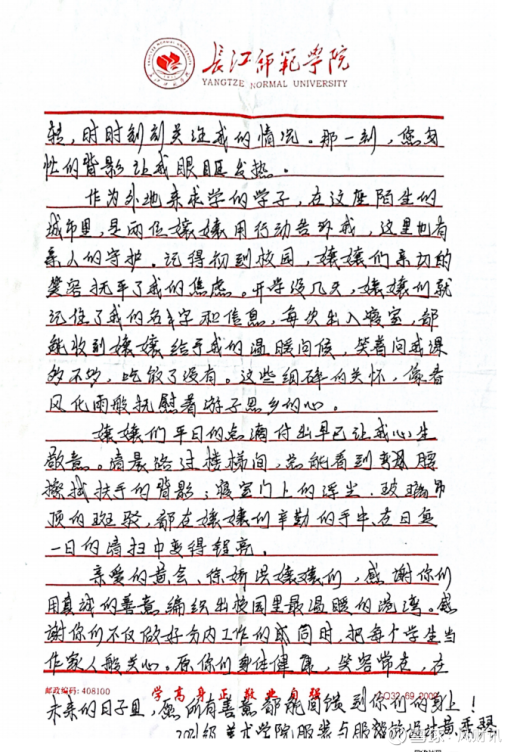 长江师范学院
YANGTZE NORMAL UNIVERSITY
转，时时刻刻关注我的情况。那一刻，您匆
忙的背影让我眼眶发热。
作为外地来求学的学子，在这座陌生的
城市里，是两位嬢嬢用行动告诉我，这里也有
亲人的守护。记得初到校园，嬢嬢们亲切的
笑容抚平了我的焦虑。开学没几天，嬢嬢们就
记住了我的名字和信息，每次出入寝室，都
能收到嬢嬢给予我的温暖问候，笑着问我课
多不多，吃饭了没有。这些细碎的关怀，像春
风化雨般抚慰着游子思乡的心。
嬢嬢们平日的点滴付出早已让我心生
敬意。清晨路过楼梯间，总能看到弯腰
擦拭扶手的背影；寝室门上的浮尘，玻璃吊
顶的斑驳，都在嬢嬢们辛勤的手中，在日复
一日的清扫中变得锃亮。
亲爱的黄会、徐娇洪嬢嬢们，感谢你们
用真诚的善意编织出校园里最温暖的涟漪。感
谢你们不仅做好分内工作的同时，把每个学生当
作家人般关心。愿你们身体健康，笑容常在，在
邮政编码：408100
学高身正 敬业自强
未来的日子里，愿所有善意都能回馈到你们的身上！
级美术学院服装与服饰设计